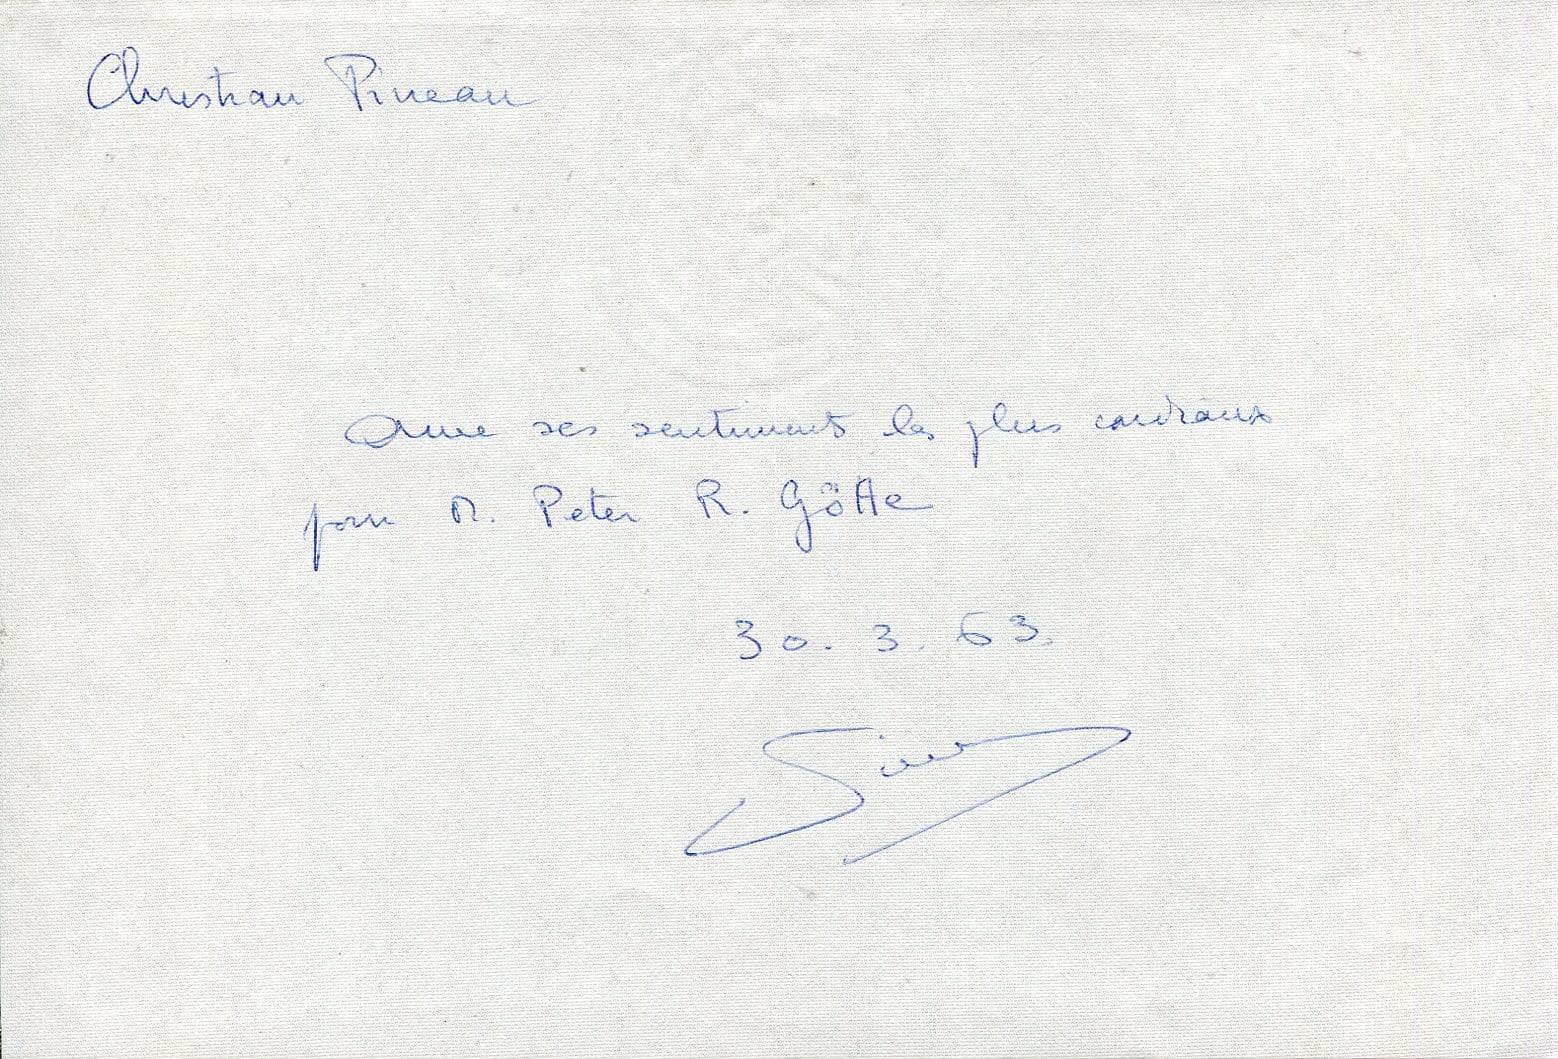 Christian Pineau
Avec ses sentiments les plus cordiaux
pour M. Peter R. Götte
30. 3. 63.